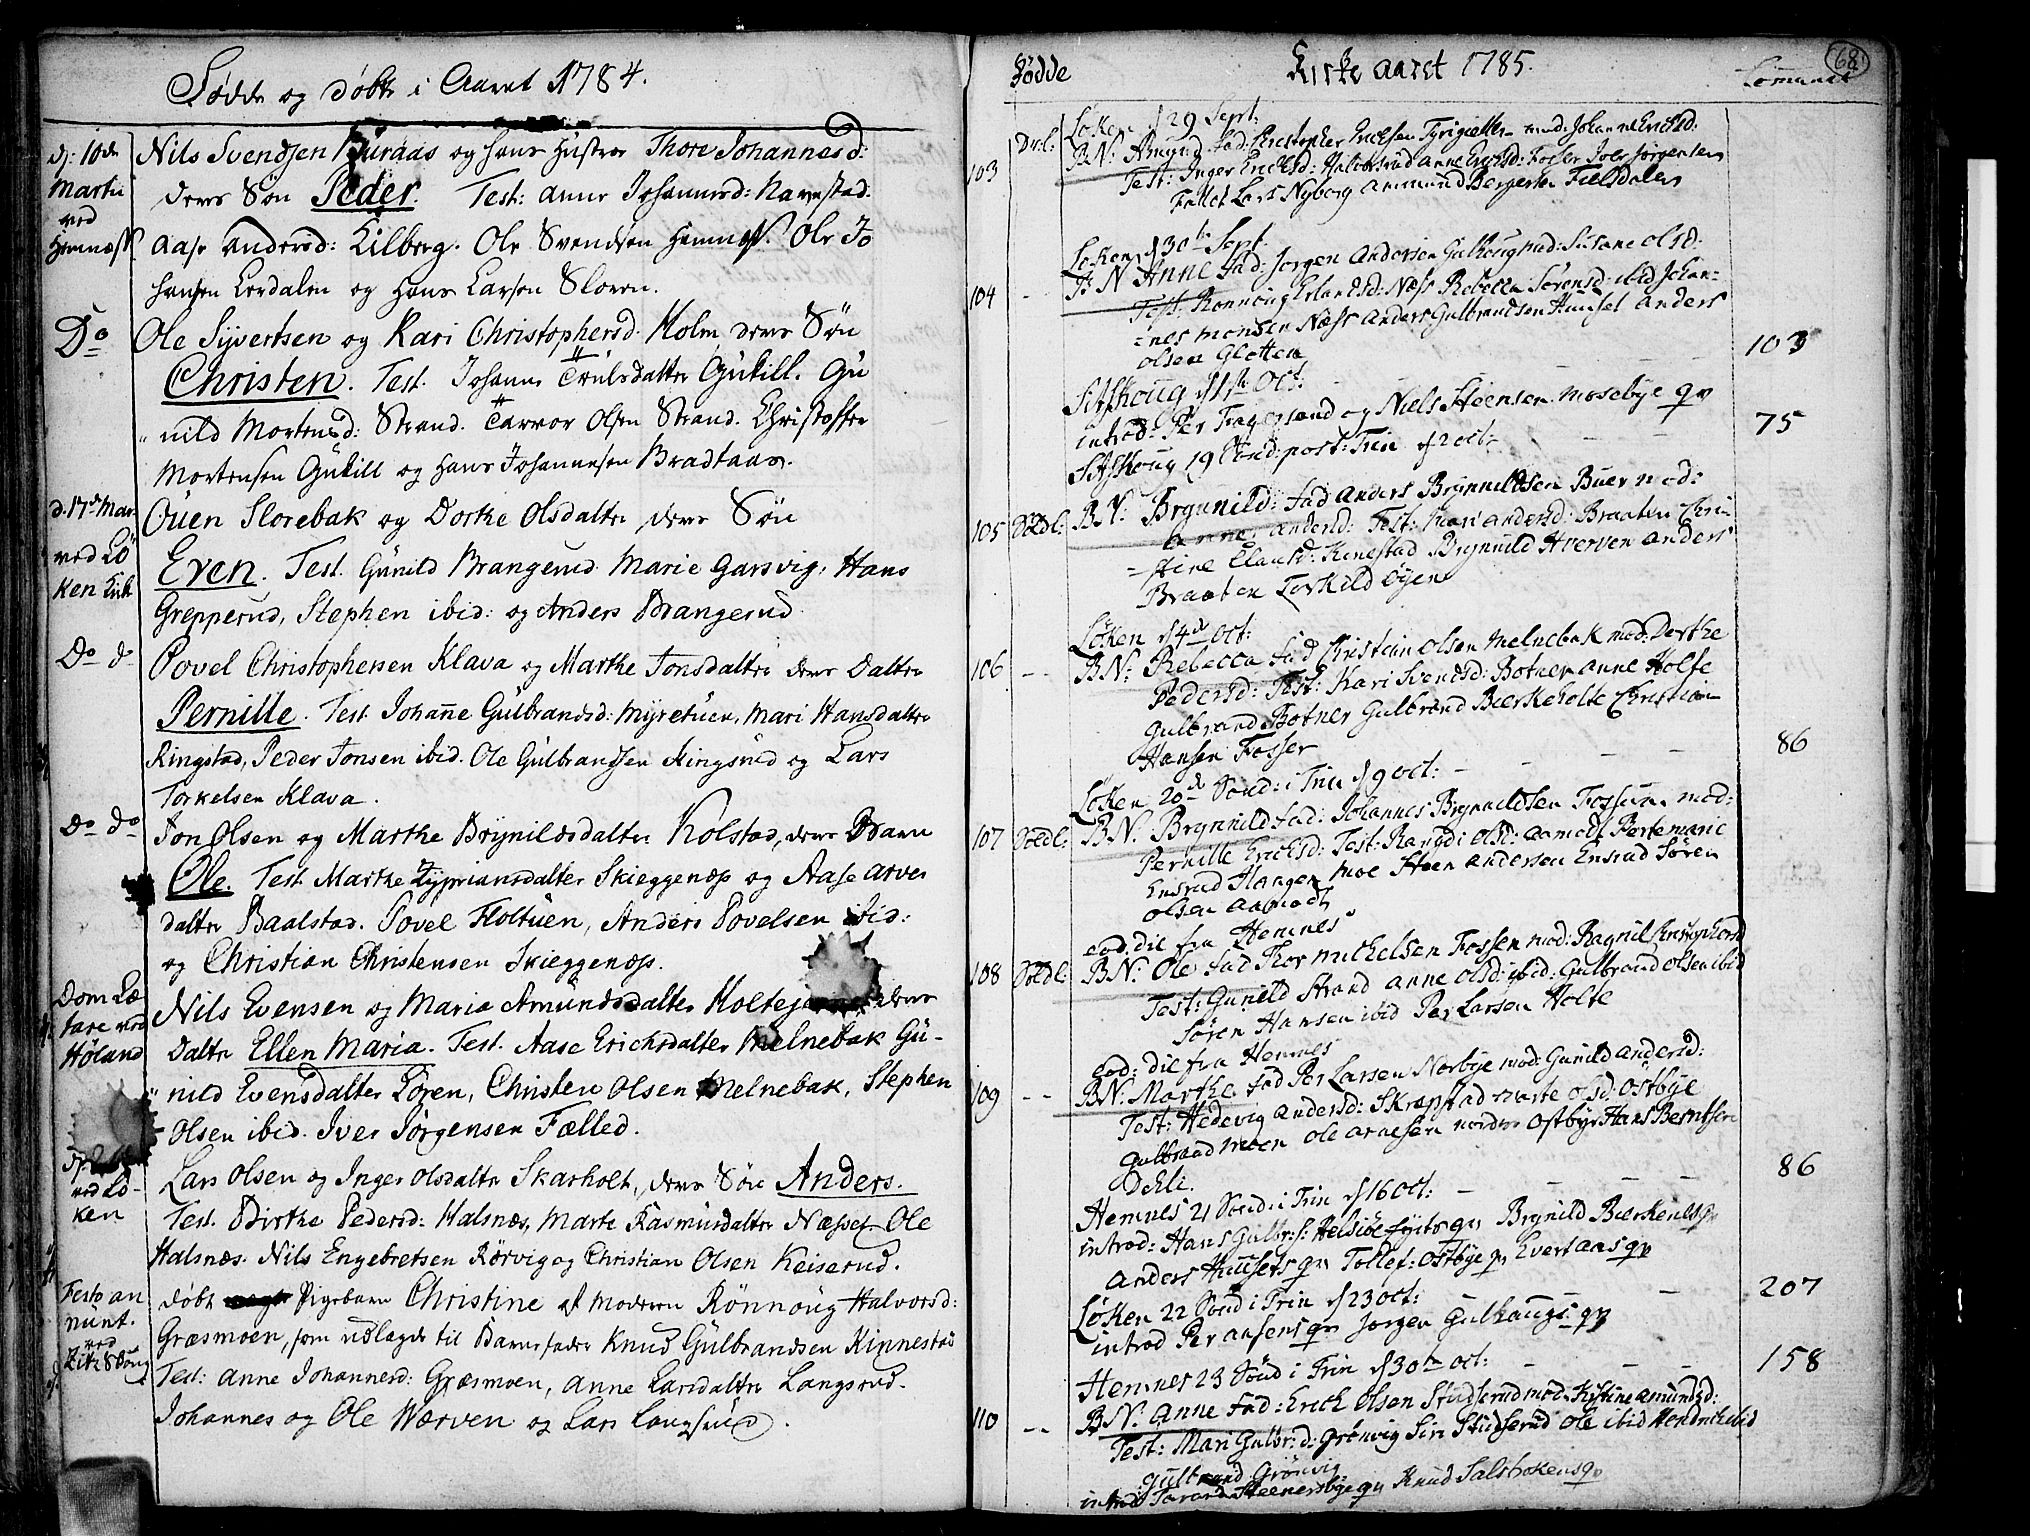 Födde og döbte i Aaret 1784.
d: 10de Martii ved Hemnæss
Nils Svendsen Buraas og hans Hustroe Thore Johannesd:
deres Sön Peder. Test: Anne Johannesd: Navestad.
Aase Andersd: Kilberg. Ole Svendsen Hemnæss. Ole Jo
hansen Lerdalen og Hans Larsen Sloren.
Do
Ole Syvertsen og Kari Christophersd. Holm deres Sön
Christen. Test. Johanne Trulsdatter Gukill. Gu
nild Mortensd: Strand. Tarvor Olsen Strand. Christoffer
Mortensen Gukill og Hans Johannesen Bradtaas.
d. 17de Mar. ved Lö ken Kirk
Ouen Slorebak og Dorthe Olsdatter deres Sön
Even. Test. Gunild Brangerud. Marie Garsvig, Hans
Grepperud, Stephen ibid: og Anders Brangerud
Do do
Povel Christophersen Klava og Marthe Jonsdatter deres Datter
Pernille. Test. Johanne Gulbrandsd: Myretuen, Mari Hansdatter
Ringstad, Peder Jonsen ibid. Ole Gulbrandsen Kingsrud og Lars
Torkelsen Klava.
Do do
Jon Olsen og Marthe Brynildsdatter Kolstad, deres Barn
Ole. Test. Marthe Zypriansdatter Skieggenæs og Aase Arves
datter Baalstad. Povel Floltuen, Anders Povelsen ibid:
og Christian Christensen Skieggenæss.
Dom Læ tare ved Höland
Nils Evensen og Maria Amundsdatter deres
Datter Ellen Maria. Test. Aase Erichsdatter Melnebak Gu-
nild Evensdatter Lören, Christen Olsen Melnebak, Stephen
Olsen ibid. Iver Jörgensen Fælled.
ved Lö- ken
Lars Olsen og Inger Olsdatter Skarholt, deres Sön Anders.
Test. Birthe Pedersd: Halsnæs, Marte Rasmusdatter Næsset Ole
Halsnæs. Nils Engebretsen Rörvig og Christian Olsen Keiserud.
Festo an nunt. ved Zitz Skoug
döbt Pigebarn Christine af Moderen Rönnoug Halvorsd:
Græsmoen, som udlagde til Barnefader Knud Gulbrandsen Kinnestad
Test: Anne Johannesd: Græsmoen, Anne Larsdatter Langsrud.
Johannes og Ole Wærven og Lars Langsrud.
Födde Kirke aaret 1785. 68
Löken d 29 Sept:
103 BN: Amund fad: Christopher Erichsen Tyrigiellen mod: Johanne Ericksd:
Test: Inger Ericksd: Haldorsrud Anne Ericksd: Fosser Iver Jörgensen
Fallet Lars Nyborg Ammund Bergersen Fielsdalen
Löken d 30te Sept.
104 -- BN Anne fad: Jorgen Andersen Gulhoug mod: Susane Olsd:
Test: Ronnoug Erlandsd: Næss Rebecca Sörensd: ibid Johan-
=nes Monsen Næss Anders Gulbrandsen Huuset Anders
Olsen Glotten 103
Sitskoug d 1ste Oct:
introd: Per Fragersand og Niels Steensen Mosebye qv 75
Sitskoug 19 Sönd: post: Trin d 2 oct:
105 BN: Brynnild: fad Anders Brynnildsen Buer mod:
Anne Andersd: Test: Mari Andersd: Braaten Chri-
-stine Elansd: Kinestad Brynnild Hverven Anders
Braaten Torkild Öyen
Löken d 4de Oct:
106 -- BN: Rebecca fad Christian Olsen Melnebak mod: Dorthe
Pedersd: Test: Kari Svendsd: Botner Anne Holte
Gulbrand Botner Gulbrand Bierkeholte Christian
Hansen Fosser 86
Löken 20de Sönd: i Trin d 9 oct:
107 BN: Brynnild fad: Johannes Brynnildsen Fossum mod:
Pernille Ericksd: Test: Rangdi Olsd: Aamodt Bertemarie
Ensrud Hangen Moe Steen Andersen Ensrud Sören
Olsen Aamodt
eod: die fra Hemnes
108 BN: Ole fad Thor Michelsen Fossen mod: Ragnil Christophersd
Test: Gunild Strand Anne Olsd: ibid: Gulbrand Olsen ibid
Sören Hansen ibid Per Larsen Holte
eod: die fra Hemnes
109 -- BN: Marthe fad Per Larsen Norbye mod: Gunild Andersd:
Test: Hedevig Andersd: Skræpstad Marte Olsd: Östbye
Gulbrand Moen Ole Arnesen nordre Ostbye Hans Berntsen
Dehli. 86
Hemnes 21 Sönd: i Trin d 16 Oct:
introd: Hans Gulbr:s: Helsiöe qv Brynild Bierkenes qv
Anders Huusets qv Tollef: Ostbye qv Evertans qv 207
Löken 22 Sönd i Trin d 23 oct:
introd Per Ansens qv Jorgen Gulhaugs qv 158
Hemnes 23 Sönd i Trin d 30te oct:
110 -- BN: Anne fad: Erick Olsen Studserud mod: Kistine Amundsd:
Test: Mari Gulbr:d: Grönvig Siri Studserud Ole ibid Hendrick ibid
Gulbrand Grönvig
introd Steenersbye qv Knud Salsbakens qv